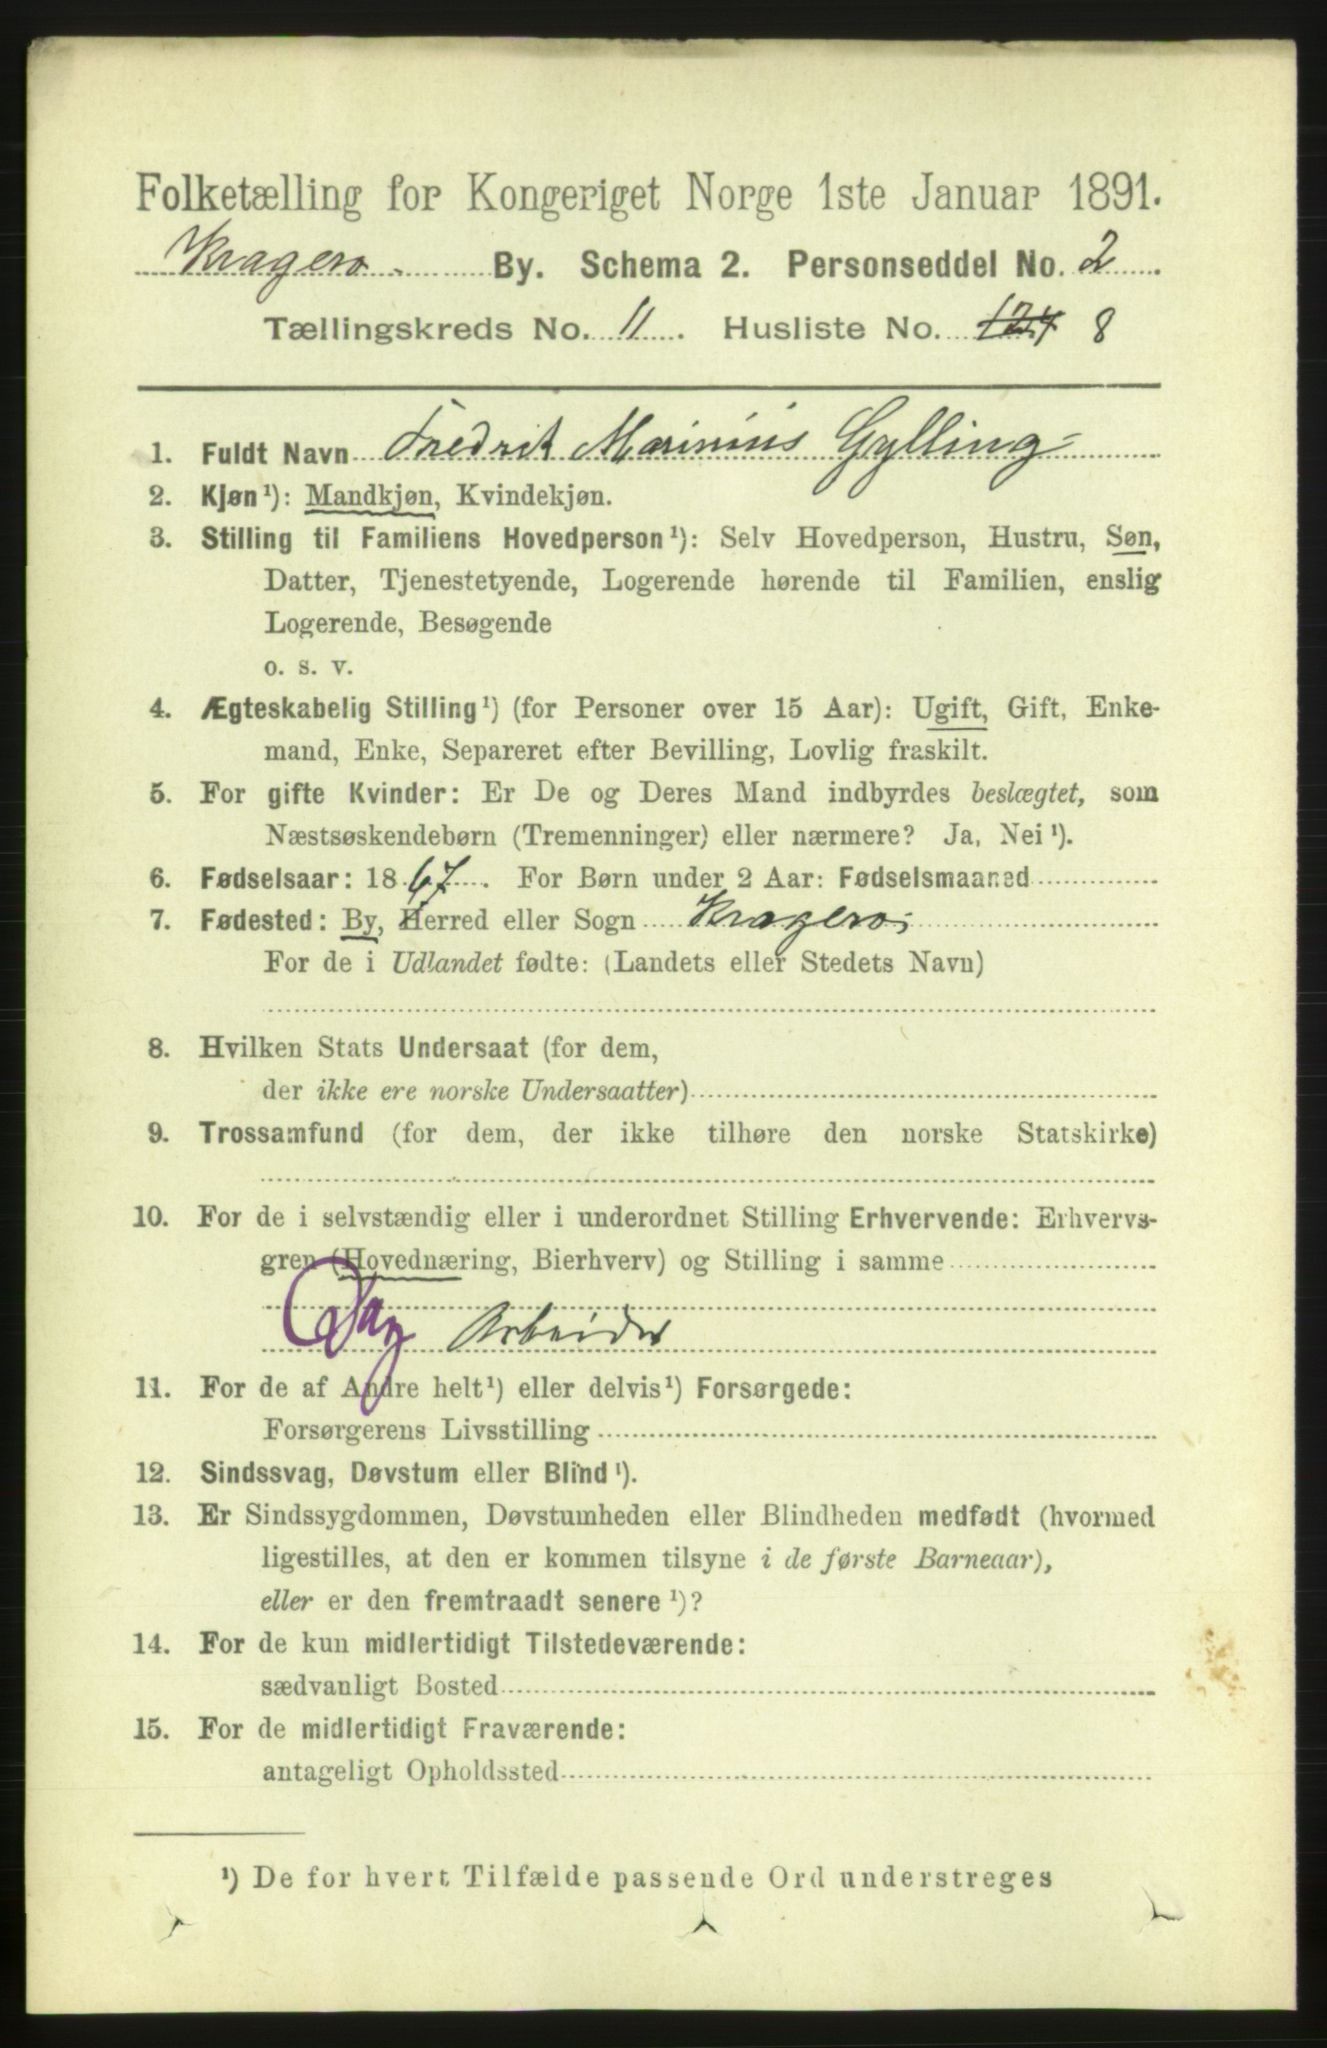 Folketælling for Kongeriget Norge 1ste Januar 1891.
Kragerø. By. Schema 2. Personseddel No. 2
Tællingskreds No. 11. Husliste No. 124 8
1. Fuldt Navn Fredrik Marinius Gylling
2. Kjøn¹): Mandkjøn, Kvindekjøn.
3. Stilling til Familiens Hovedperson¹): Selv Hovedperson, Hustru, Søn,
Datter, Tjenestetyende, Logerende hørende til Familien, enslig
Logerende, Besøgende
o. s. v.
4. Ægteskabelig Stilling¹) (for Personer over 15 Aar): Ugift, Gift, Enke-
mand, Enke, Separeret efter Bevilling, Lovlig fraskilt.
5. For gifte Kvinder: Er De og Deres Mand indbyrdes beslægtet, som
Næstsøskendebørn (Tremenninger) eller nærmere? Ja, Nei¹).
6. Fødselsaar: 1867. For Børn under 2 Aar: Fødselsmaaned
7. Fødested: By, Herred eller Sogn Kragerø
For de i Udlandet fødte: (Landets eller Stedets Navn)
8. Hvilken Stats Undersaat (for dem,
der ikke ere norske Undersaatter)
9. Trossamfund (for dem, der ikke tilhøre den norske Statskirke)
10. For de i selvstændig eller i underordnet Stilling Erhvervende: Erhvervs-
gren (Hovednæring, Bierhverv) og Stilling i samme
Dag Arbeider
11. For de af Andre helt¹) eller delvis¹) Forsørgede:
Forsørgerens Livsstilling
12. Sindssvag, Døvstum eller Blind¹).
13. Er Sindssygdommen, Døvstumheden eller Blindheden medfødt (hvormed
ligestilles, at den er kommen tilsyne i de første Barneaar),
eller er den fremtraadt senere¹)?
14. For de kun midlertidigt Tilstedeværende:
sædvanligt Bosted
15. For de midlertidigt Fraværende:
antageligt Opholdssted
¹) De for hvert Tilfælde passende Ord understreges